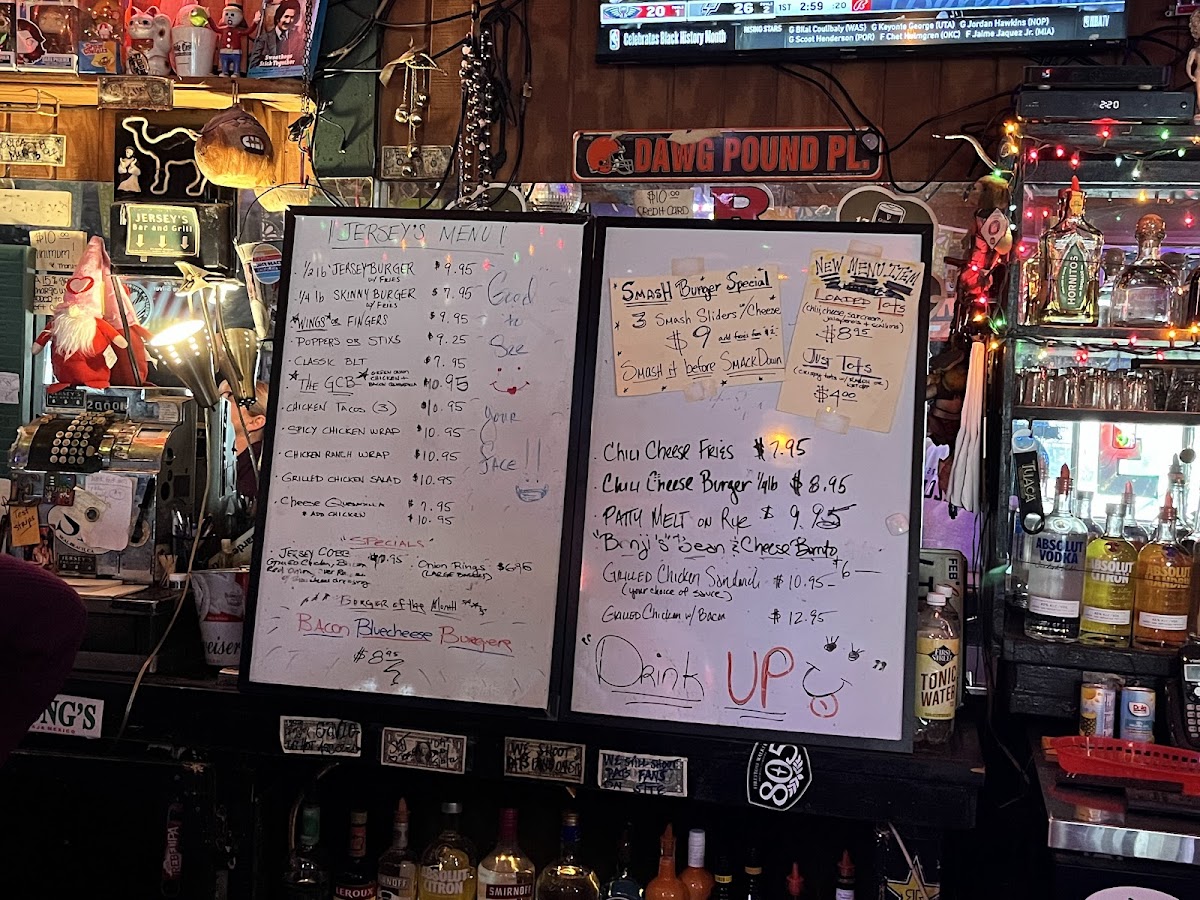 20
26
1ST 2:59 :20
Celebrates Black History Month
RISING STARS
G Bilal Coulibaly (WAS) G Keyonte George (UTA) G Jordan Hawkins (NOP)
G Scoot Henderson (POR) F Chet Holmgren (OKC) F Jaime Jaquez Jr. (MIA)
NBATV
2:20
DAWG POUND PL.
$10.00
CREDIT CARD
JERSEY'S
Bar and Grill
$10.00
minimum
"JERSEY'S MENU"
1/2 lb JERSEY BURGER $9.95
w/ FRIES
1/4 lb SKINNY BURGER $7.95
w/ FRIES
*WINGS* OR FINGERS $9.95
POPPERS OR STIXS $9.25
CLASSIC BLT $7.95
*THE GCB* GREEN ONION CHICKEN + BACON QUESADILLA $10.95
CHICKEN TACOS (3) $10.95
SPICY CHICKEN WRAP $10.95
CHICKEN RANCH WRAP $10.95
GRILLED CHICKEN SALAD $10.95
CHEESE QUESADILLA $7.95
+ ADD CHICKEN $10.95
"SPECIALS"
JERSEY COBB $10.95
Grilled Chicken, Bacon
Red Onion
Onion Rings $6.95
(LARGE BASKET)
BURGER of the Month
BACON Bluecheese Burger
$8.95
Good
to
See
your
FACE!!
SMASH Burger Special
3 Smash Sliders w/Cheese
$9 add fries for $2
Smash it before SmackDown
NEW MENU ITEM
LOADED TOTS
(chili, cheese, sour cream,
jalapenos + scallions)
$8.95
JUST TOTS
(crispy tots w/ ranch or
ketchup)
$4.00
CHILI CHEESE FRIES $7.95
CHILI CHEESE BURGER 1/4lb $8.95
PATTY MELT ON RYE $9.95
"Benji's" Bean & Cheese Burrito
$6—
GRILLED CHICKEN SANDWICH $10.95
(your choice of sauce)
GRILLED CHICKEN w/ BACON $12.95
"Drink UP"
HORNITOS
TUACA
ABSOLUT
VODKA
ABSOLUT
CITRON
ABSOLUT
FEB
FIRST STREET
TONIC
WATER
Dole
NG'S
WE SHOOT
DABS FANS ONSITE
WE STILL SHOOT
DABS FANS
ON SITE
805
LEROUX
SMIRNOFF
ABSOLUT
CITRON
SMIRNOFF